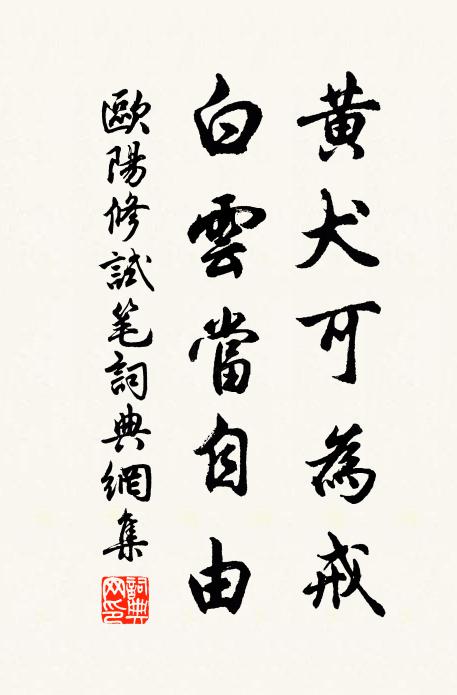 黃犬可為戒
白雲當自由
歐陽修試筆詞典網集
詞典網印